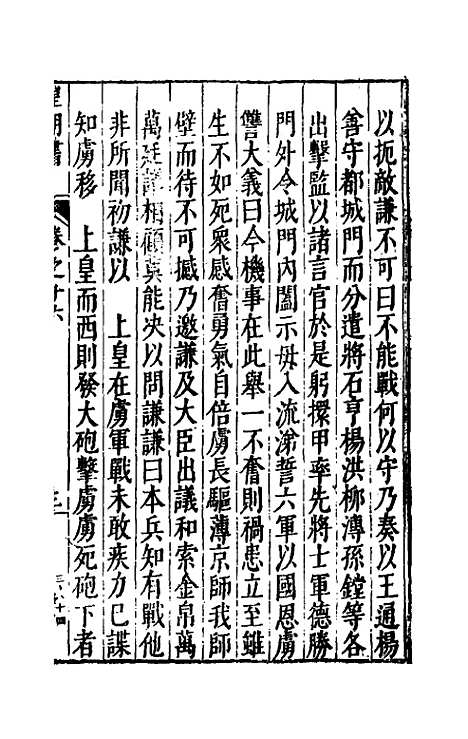 以扼敵謙不可曰不能戰何以守乃奏以王通楊
善守都城門而分遣將石亨楊洪柳溥孫鏜等各
出擊監以諸言官於是躬擐甲率先將士軍德勝
門外令城門內闔示毋入流涕誓六軍以國恩虜
讐大義曰今機事在此舉一不奮則禍患立至雖
生不如死衆感奮勇氣自倍虜長驅薄京師我師
壁而待不可撼乃邀謙及大臣出議和索金帛萬
萬廷議相顧莫能決以問謙謙曰本兵知有戰他
非所聞初謙以 上皇在虜軍戰未敢疾力已諜
知虜移 上皇而西則發大砲擊虜虜死砲下者
皇明書 卷之十六 三